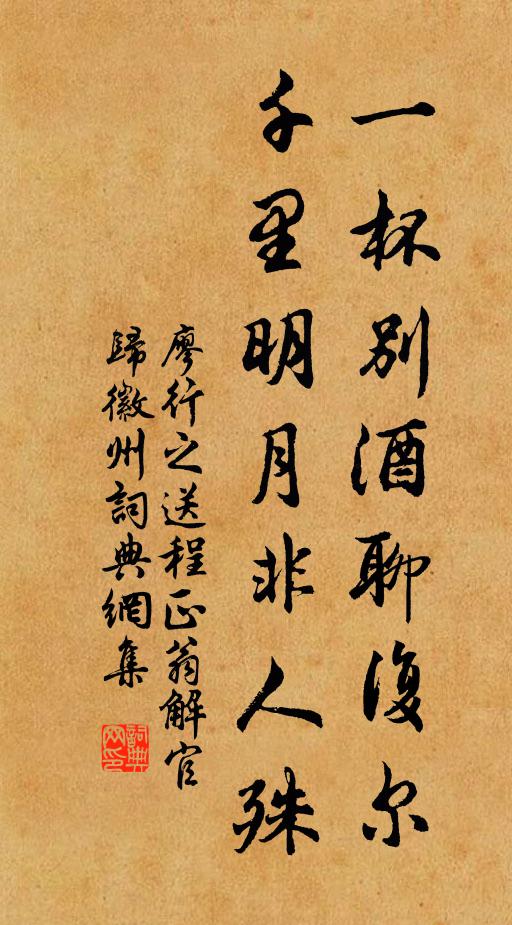 一杯别酒聊復尔
千里明月非人殊
廖行之送程正翁解官
歸徽州詞典網集
詞典网印